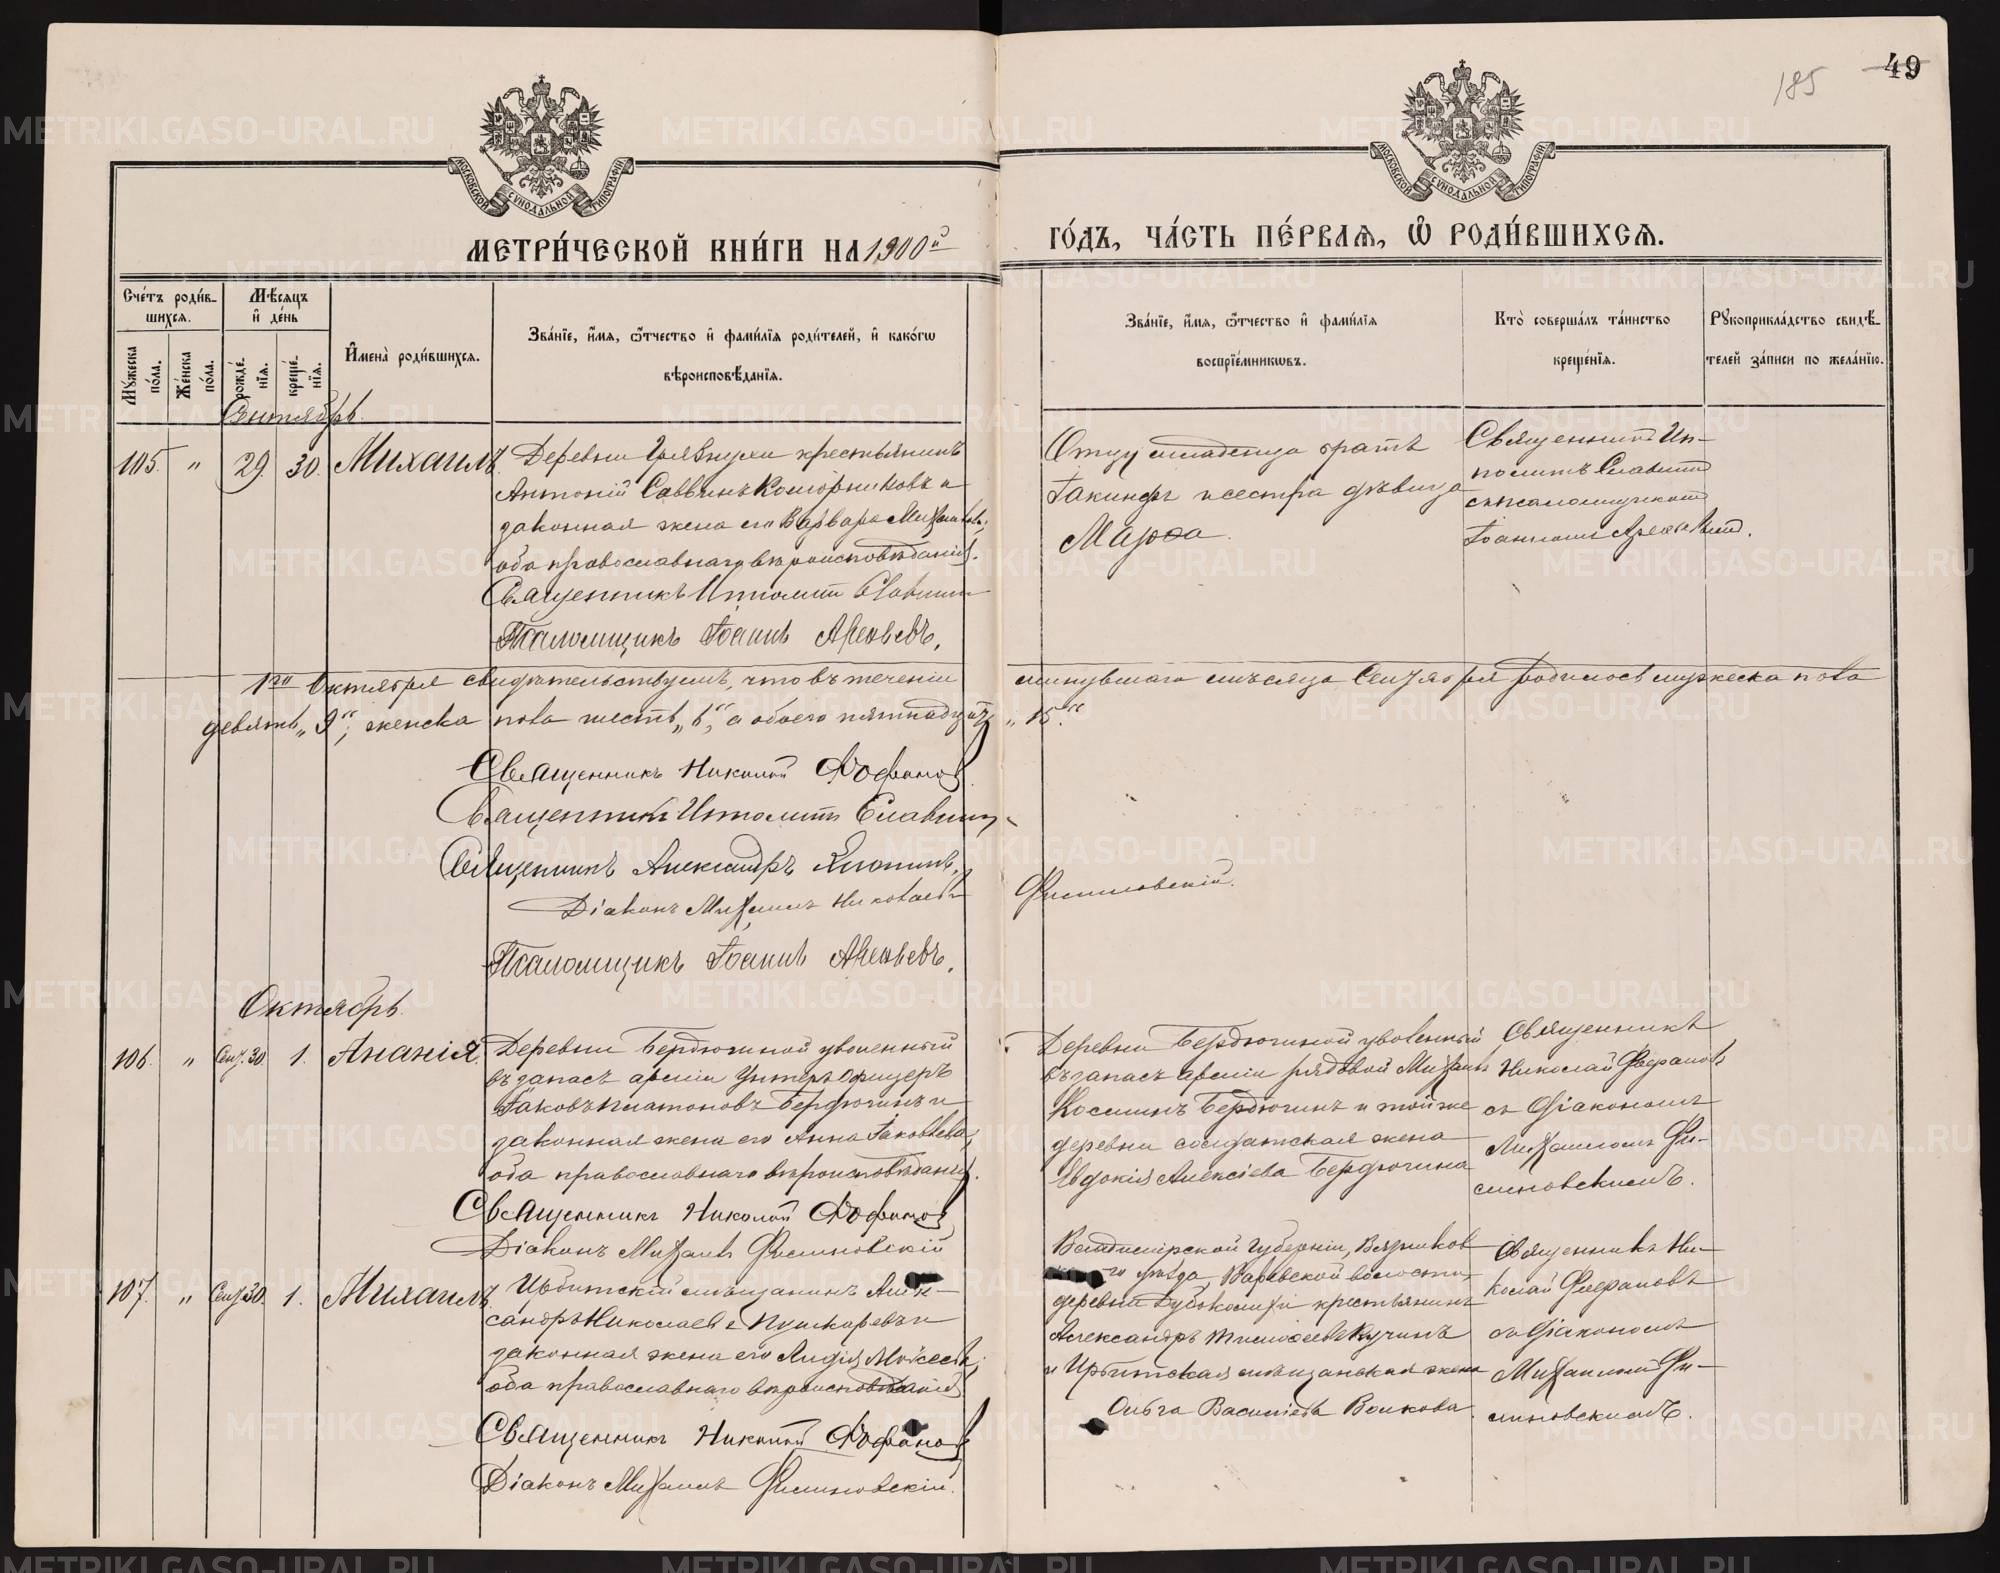 185 49
МОСКОВСКОЙ СѴНОДАЛЬНОЙ ТИПОГРАФІИ
МОСКОВСКОЙ СѴНОДАЛЬНОЙ ТИПОГРАФІИ
МЕТРИ́ЧЕСКОЙ КНИ́ГИ НА 1900й ГО́ДЪ, ЧА́СТЬ ПЕ́РВАЯ, Ѡ РОДИ́ВШИХСЯ.
Сче́тъ роди́в-
шихся.
Мѣсяцъ
и де́нь
Му́жеска по́ла.
Же́нска по́ла.
рожде́нїя.
креще́нїя.
Имена̀ роди́вшихся.
Зва́нїе, и́мя, ѻ́тчество и фами́лїя роди́телей, и како́гѡ
вѣроисповѣ́данїя.
Зва́нїе, и́мя, ѻ́тчество и фами́лїя
воспрїе́мникѡвъ.
Кто̀ соверша́лъ та́инство
креще́нїя.
Рукоприкла́дство свидѣ́-
телей за́писи по жела́нїю.
Сентябрь.
105. " 29. 30. Михаилъ
Деревни крестьянинъ
Антоній Саввинъ и
законная жена его Варвара
оба православнаго вѣроисповѣданія.
Священникъ Ипполитъ Славнин
Псаломщикъ Іоаннъ Арефьевъ.
Отцу младенца братъ
Іакинфъ и сестра дѣвица
Марѳа.
Священникъ Ип-
политъ Славнин
съ псаломщикомъ
Іоанномъ Арефьевым.
1го Октября свидѣтельствуемъ, что въ теченіи минувшаго мѣсяца Сентября родилось мужеска пола
девять „9“, женска пола шесть „6“, а обоего пятнадцать „15“.
Священникъ Николай Фофанов
Священникъ Ипполитъ Славнин
Священникъ Александръ
Діаконъ Михаилъ Николаевъ Филиновскій.
Псаломщикъ Іоаннъ Арефьевъ.
Октябрь.
106. " Сент. 30 1. Ананія
Деревни Бердюгиной уволенный
въ запасъ арміи Унтеръ-Офицеръ
Іаковъ Платоновъ Бердюгинъ и
законная жена его Анна Іаковлева,
оба православнаго вѣроисповѣданія.
Священникъ Николай Фофанов
Діаконъ Михаилъ Филиновскій
Деревни Бердюгиной уволенный
въ запасъ арміи рядовой Михаилъ
Косминъ Бердюгинъ и той же
деревни солдатская жена
Евдокія Алексіева Бердюгина
Священникъ
Николай Фофановъ
съ Діакономъ
Михаиломъ Фи-
линовскимъ.
107. " Сент. 30. 1. Михаилъ
Ирбитскій мѣщанинъ Алек-
сандръ Николаевъ Пушкаревъ и
законная жена его Лидія Моѵсеева,
оба православнаго вѣроисповѣданія
Священникъ Николай Фофанов
Діаконъ Михаилъ Филиновскій.
Владимірской Губерніи, Вязников
го уѣзда, волости,
деревни крестьянинъ
Александръ Тимоѳеевъ Кучинъ
и Ирбитская мѣщанская жена
Ольга Василіева Волкова.
Священникъ Ни-
колай Фофановъ
съ Діакономъ
Михаиломъ Фи-
линовскимъ.
METRIKI.GASO-URAL.RU